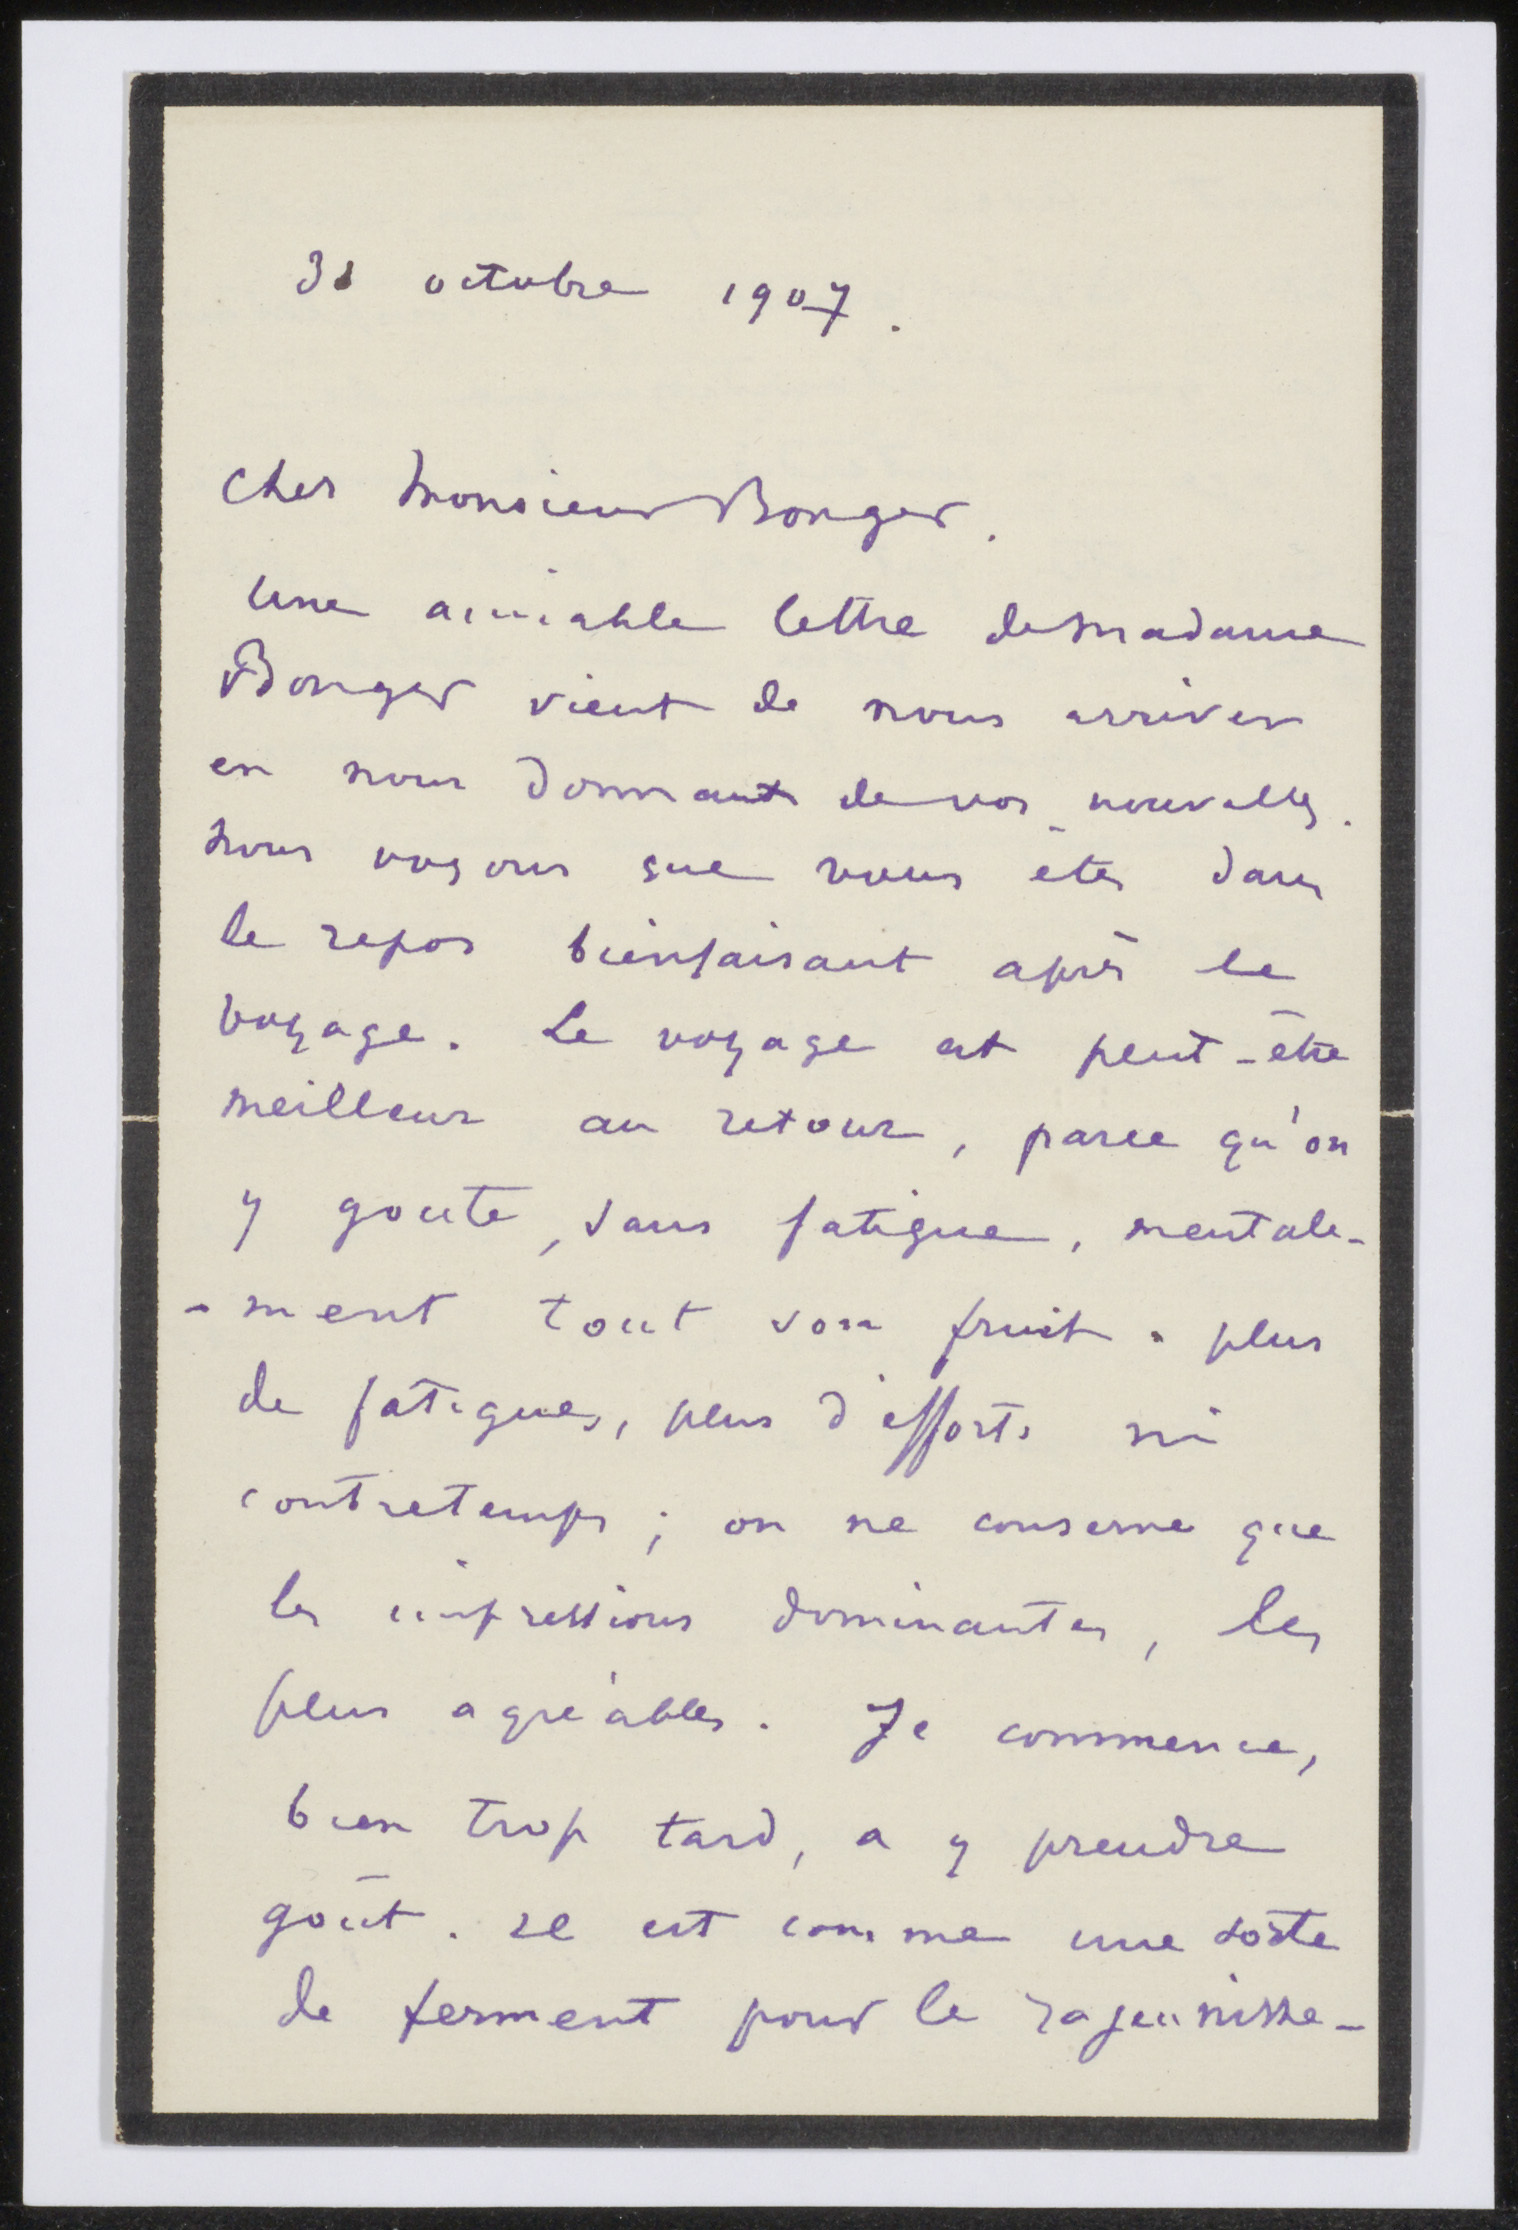 31 octobre 1907.
Cher Monsieur Bonger.
Une aimable lettre de Madame
Bonger vient de nous arriver
en nous donnant de vos nouvelles.
Nous voyons que vous êtes dans
le repos bienfaisant après le
voyage. Le voyage est peut-être
meilleur au retour, parce qu'on
y goute, sans fatigue, mentale-
-ment tout son fruit. plus
de fatigues, plus d'efforts ni
contretemps ; on ne conserve que
les impressions dominantes, les
plus agréables. Je commence,
bien trop tard, a y prendre
goût. Il est comme une sorte
de ferment pour le rajeunisse-